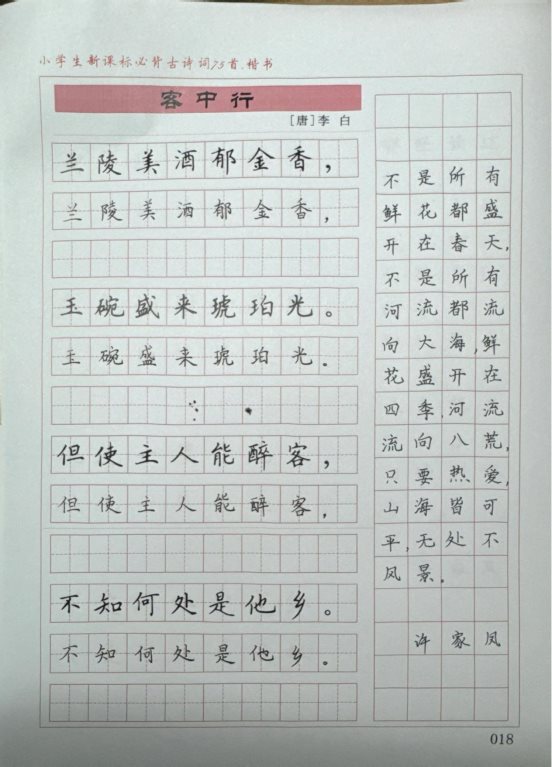 小学生新课标必背古诗词75首.楷书
客中行
[唐]李 白
兰陵美酒郁金香，
兰陵美酒郁金香，
玉碗盛来琥珀光。
玉碗盛来琥珀光。
但使主人能醉客，
但使主人能醉客，
不知何处是他乡。
不知何处是他乡。
不是所有
鲜花都盛
开在春天，
不是所有
河流都流
向大海，鲜
花盛开在
四季.河流
流向八荒，
只要热爱，
山海皆可
平，无处不
风景.
许家凤
018